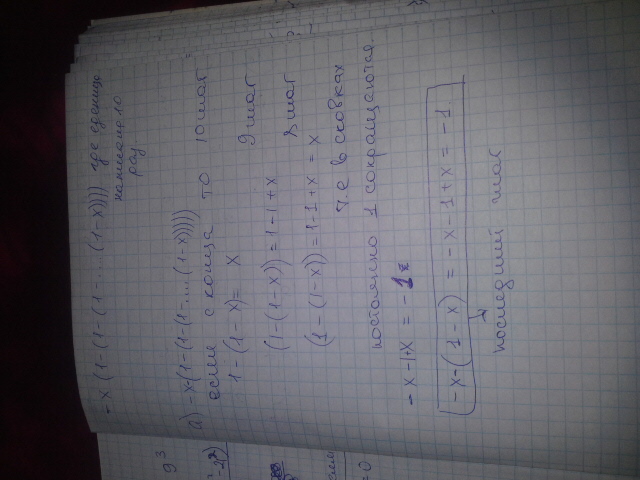 - x (1-(1-(1-....(1-x)))) где единица
написана 10
раз
а) -x-(1-(1-(1-....(1-x)))))
если с конца то 10 шаг
1-(1-x)= x 9 шаг
(1-(1-x))=1-1+x 8 шаг
(1-(1-x))=1-1+x = x
т.е в скобках
постоянно 1 сокращаются.
- x-1+x = -1
-x-(1-x) = -x-1+x = -1
последний шаг
9³
=0